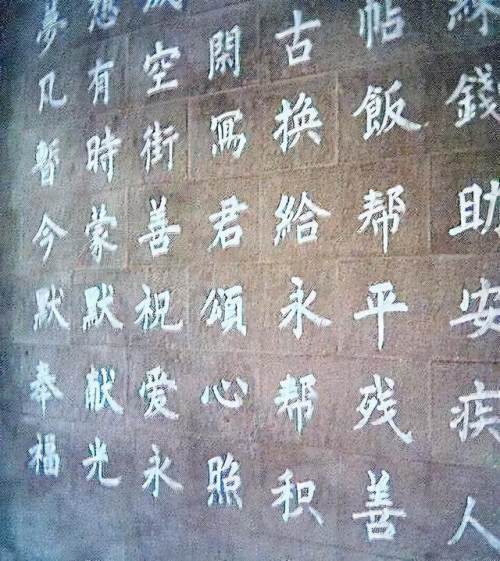 錢助安疾人
帖飯帮平残善
古换給永帮积
閑寫君頌心照
空街善祝爱永
有時蒙默献光
夢凡暫今默奉福